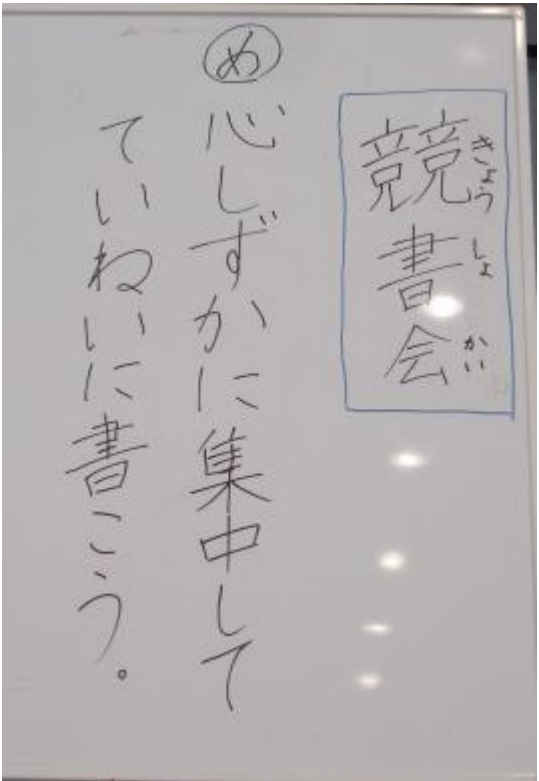 競書会
きょうしょかい
め 心しずかに集中して
ていねいに書こう。